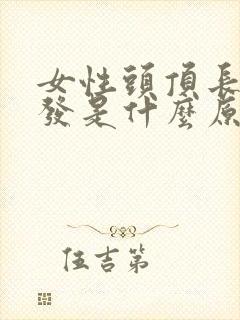 女性頭頂長
發是什麼原
伍吉第